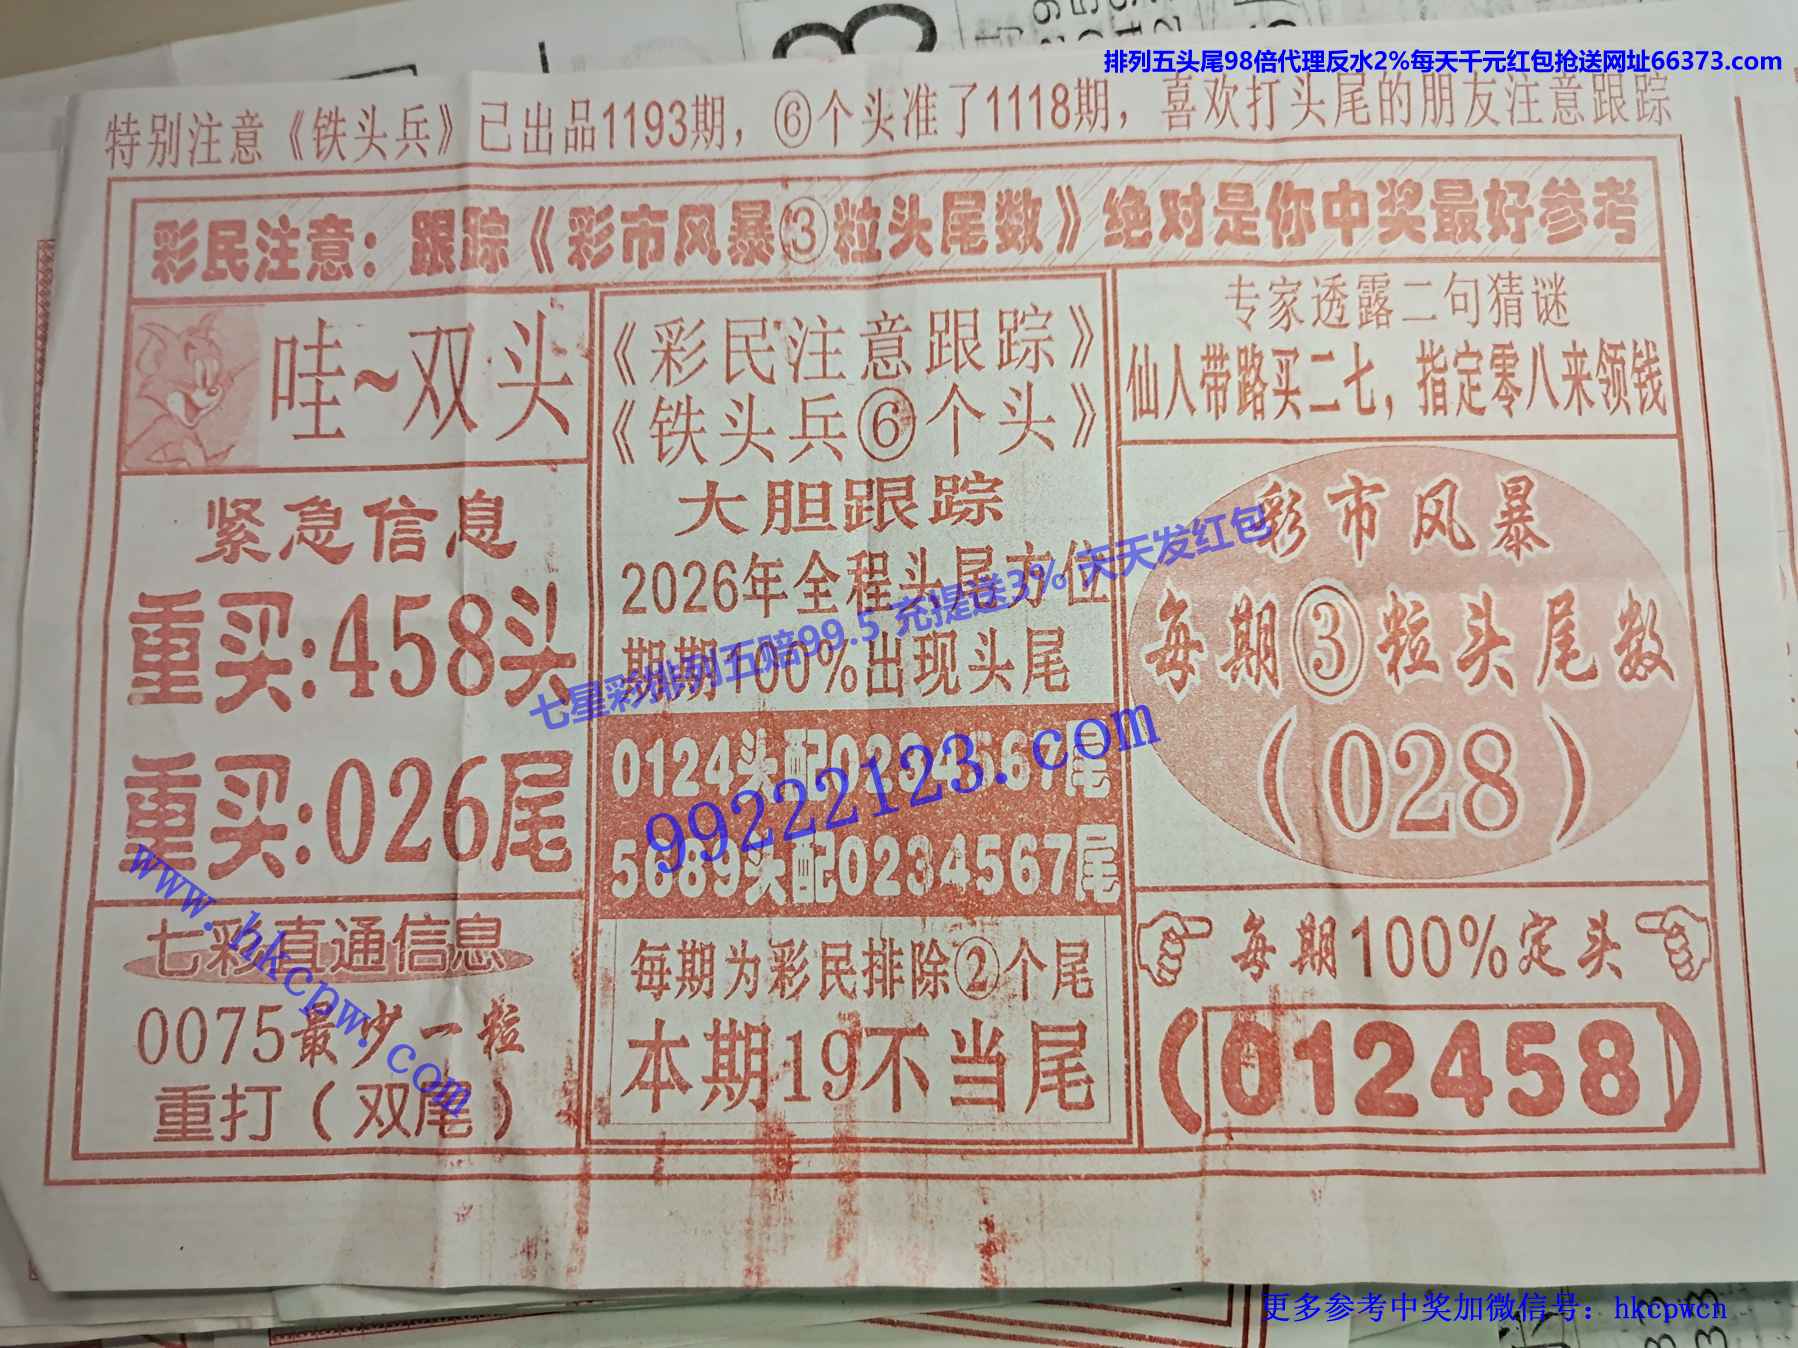 排列五头尾98倍代理反水2%每天千元红包抢送网址66373.com
特别注意《铁头兵》已出品1193期，⑥个头准了1118期，喜欢打头尾的朋友注意跟踪
彩民注意：跟踪《彩市风暴③粒头尾数》绝对是你中奖最好参考
哇~双头
紧急信息
重买:458头
重买:026尾
七彩直通信息
0075最少一粒
重打（双尾）
《彩民注意跟踪》
《铁头兵⑥个头》
大胆跟踪
2026年全程头尾方位
期期100%出现头尾
0124头配0234567尾
5689头配0234567尾
每期为彩民排除②个尾
本期19不当尾
专家透露二句猜谜
仙人带路买二七，指定零八来领钱
彩市风暴
每期③粒头尾数
（028）
每期100%定头
（012458）
七星彩排列五赔99.5 充提送3% 天天发红包
99222123.com
www.hkcpw.com
更多参考中奖加微信号：hkcpwcn